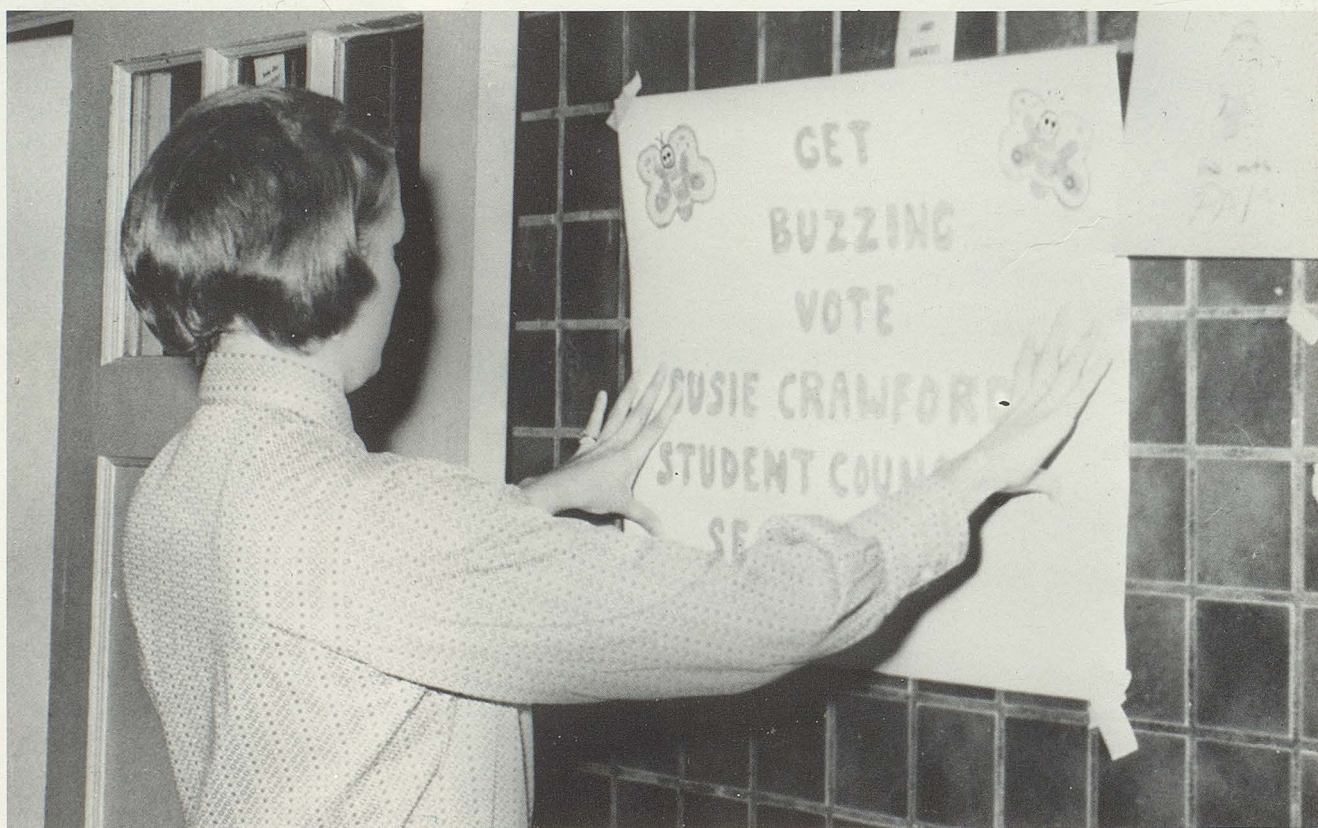 GET
BUZZING
VOTE
SUSIE CRAWFORD
STUDENT COUN
SE